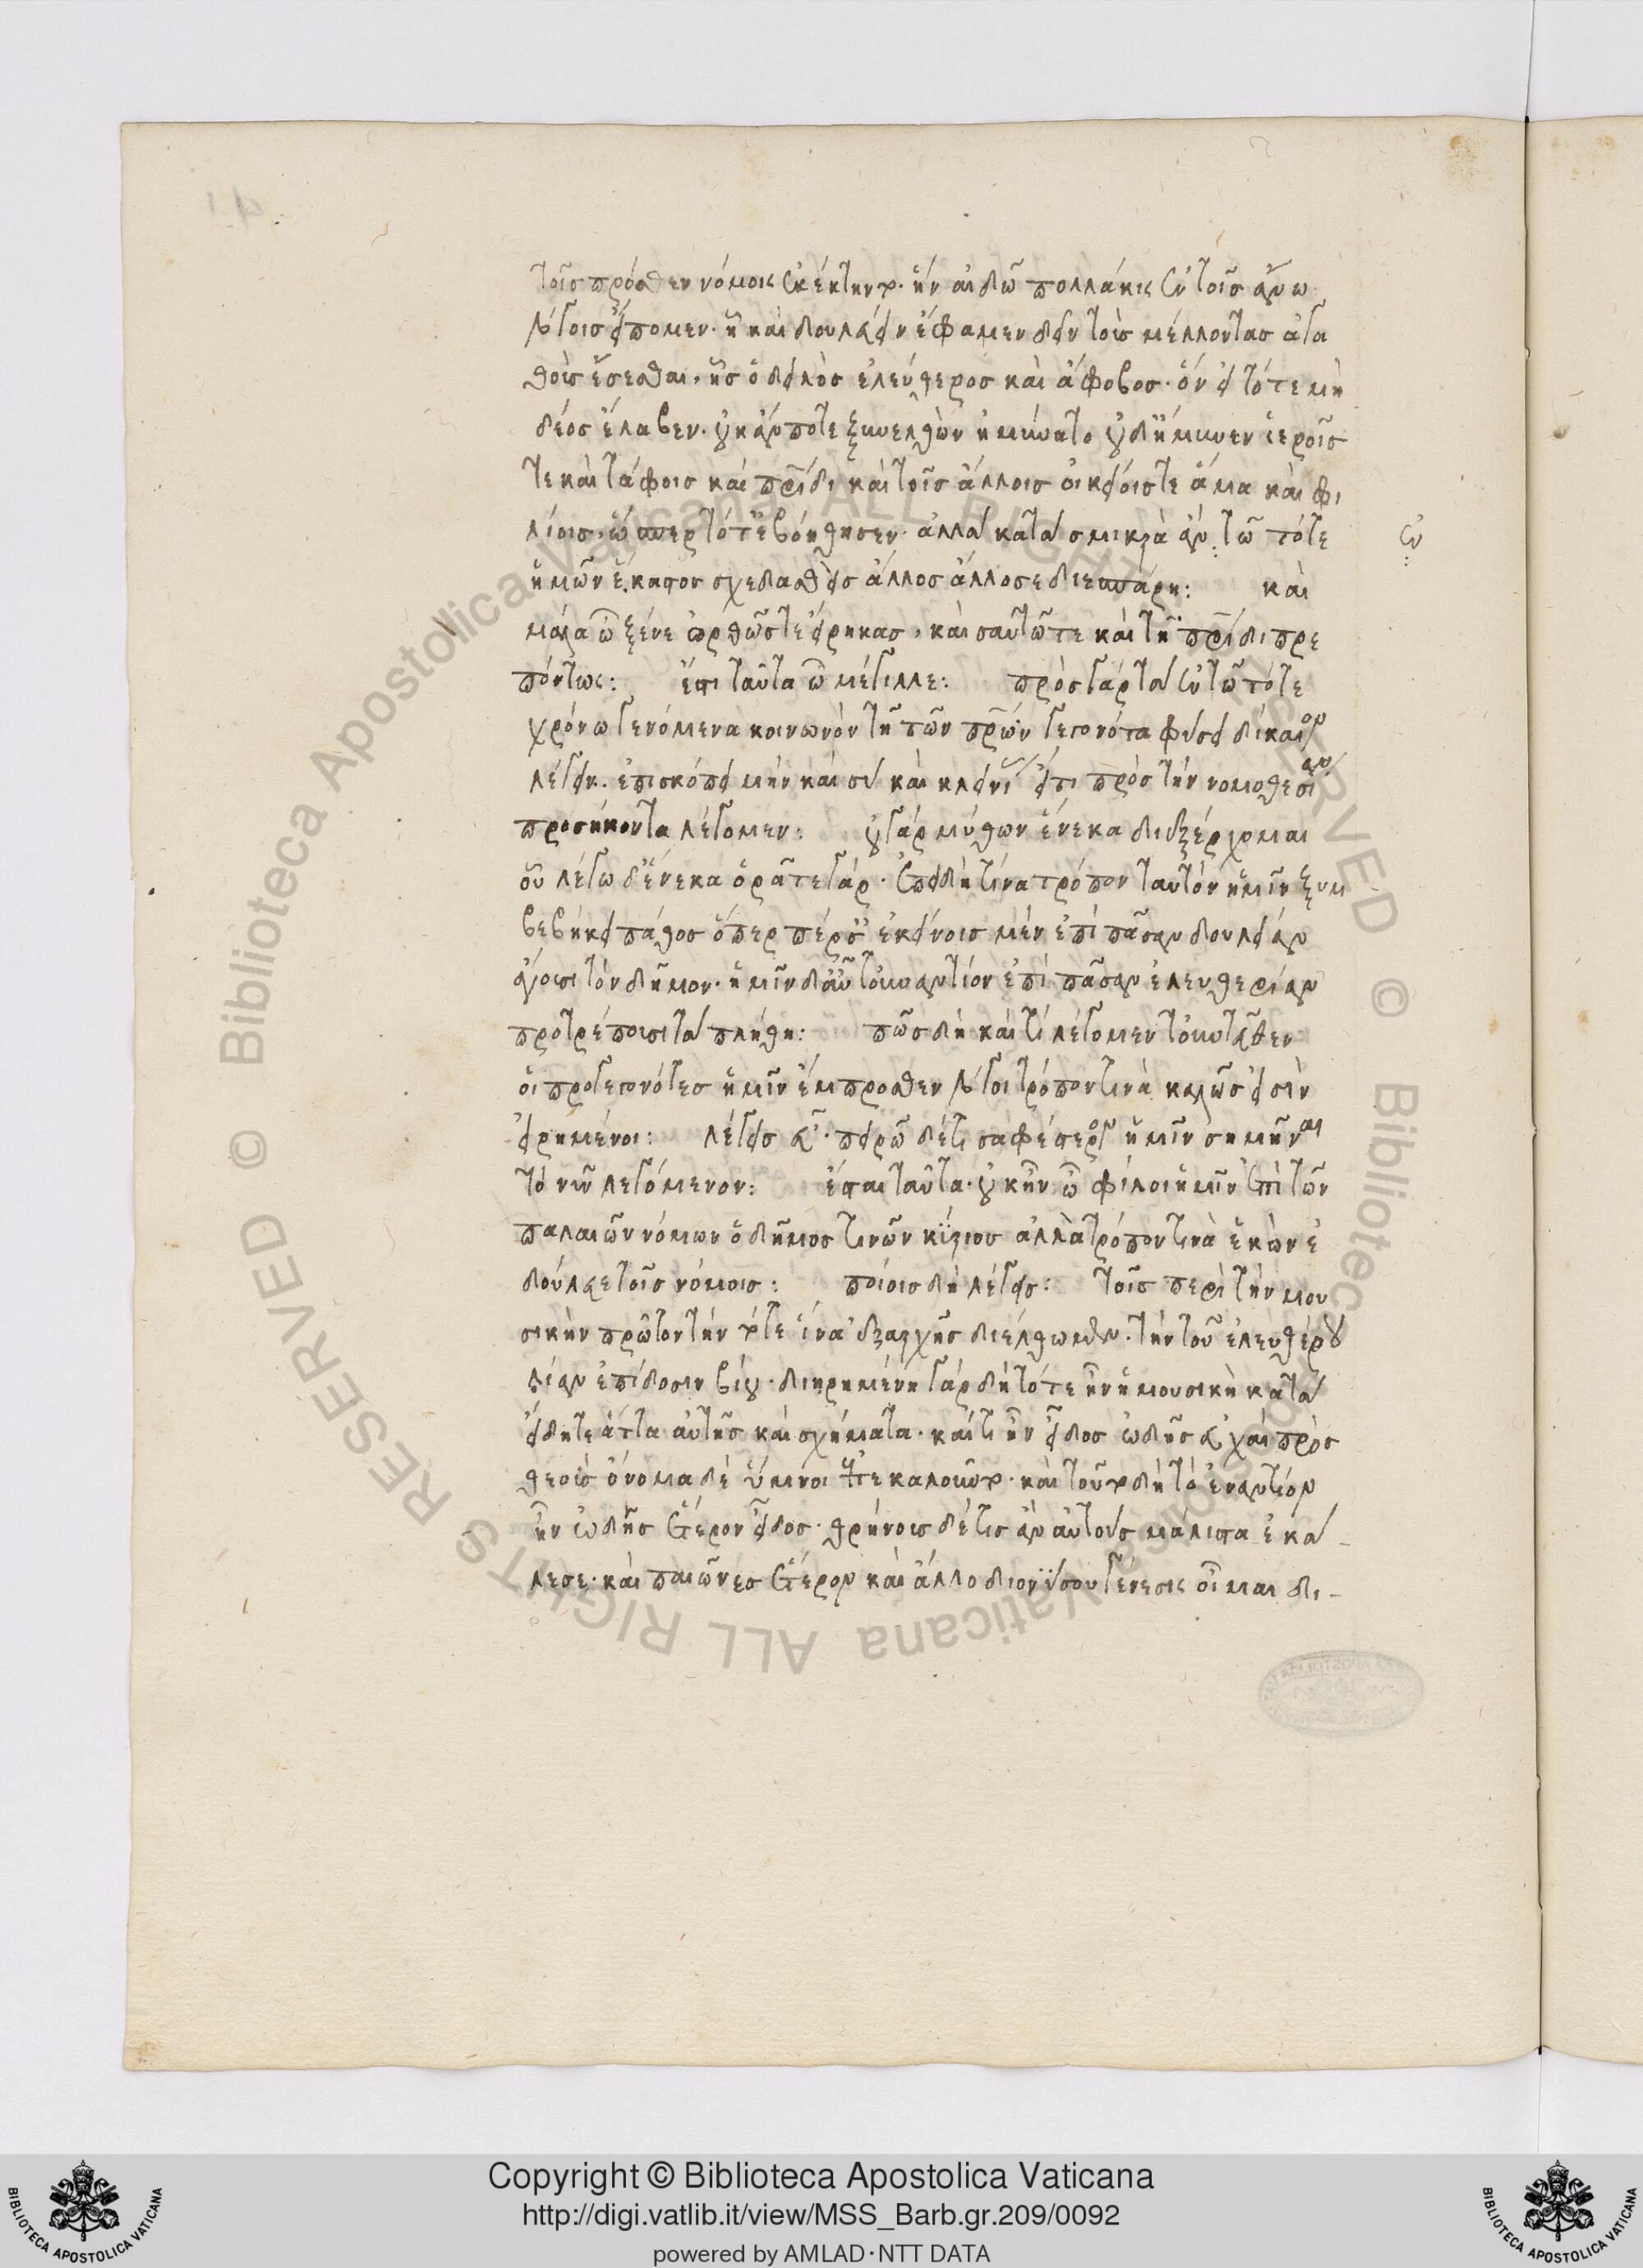 τοῖς πρόσθεν νόμοις ἐκέκτηντο. ἣν αἰδῶ πολλάκις ἐν τοῖς ἄνω
λόγοις εἴπομεν. ᾗ καὶ δουλεύειν ἔφαμεν δεῖν τοὺς μέλλοντας ἀγα
θοὺς ἔσεσθαι. ἧς ὁ δειλὸς ἐλεύθερος καὶ ἄφοβος. ὃν εἰ τότε μὴ
δέος ἔλαβεν. οὐκ ἄν ποτε ξυνελθὼν ἠμύνατο οὐδ' ἤμυνεν ἱεροῖς
τε καὶ τάφοις καὶ πρίδι καὶ τοῖς ἄλλοις οἰκείοις τε ἅμα καὶ φι
λίοις. ὥσπερ τότ' ἐβοήθησεν. ἀλλὰ κατὰ σμικρὰ ἂν τῶ τότε
ἐν
ἡμῶν ἕκαστος σχεδασθεὶς ἄλλος ἄλλοσε διεσπάρη: καὶ
μάλα ὦ ξένε ὀρθῶς τε εἴρηκας, καὶ σαυτῶ τε καὶ τῆ πρίδι πρε
πόντως: ἔστι ταῦτα ὦ μέγιλλε: πρὸς γὰρ τὰ ἐν τῶ τότε
χρόνω γενόμενα κοινωνὸν τῆ τῶν πρων γεγονότα φύσει δίκαιον
λέγειν. ἐπισκόπει μὴν καὶ σὺ καὶ κλεινί εἴ τι πρὸς τὴν νομοθεσίαν
προσήκοντα λέγομεν: οὐ γὰρ μύθων ἕνεκα διεξέρχομαι
οὗ λέγω δ' ἕνεκα ὁρᾶτε γάρ. ἐπειδή τινα τρόπον ταυτὸν ἡμῖν ξυμ
βεβήκει πάθος ὅπερ πέρσαις ἐκείνοις μὲν ἐπὶ πᾶσαν δουλείαν
ἄγουσι τὸν δῆμον. ἡμῖν δ' αὖ τοὐναντίον ἐπὶ πᾶσαν ἐλευθερίαν
προτρέπουσι τὰ πλήθη: πῶς δὴ καὶ τί λέγομεν τοὐντεῦθεν
οἱ προγεγονότες ἡμῖν ἔμπροσθεν λόγοι τρόπον τινὰ καλῶς εἰσὶν
εἰρημένοι: λέγεις εὖ. πειρῶ δ' ἔτι σαφέστερον ἡμῖν σημῆναι
τὸ νῦν λεγόμενον: ἔσται ταῦτα. οὐκ ἦν ὦ φίλοι ἡμῖν ἐπὶ τῶν
παλαιῶν νόμων ὁ δῆμος τινῶν κύριος ἀλλὰ τρόπον τινὰ ἑκὼν ἐ
δούλευε τοῖς νόμοις: ποίοις δὴ λέγεις: τοῖς περὶ τὴν μου
σικὴν πρῶτον τὴν τότε ἵνα ἐξαρχῆς διέλθωμεν. τὴν τοῦ ἐλευθέρου
λίαν ἐπίδοσιν βίου. διῃρημένη γὰρ δὴ τότε ἦν ἡ μουσικὴ κατὰ
εἴδη τε ἄττα αὑτῆς καὶ σχήματα. καί τι ἦν εἶδος ὠδῆς εὐχαὶ πρὸς
θεοὺς ὄνομα δὲ ὕμνοι ἐπεκαλοῦντο. καὶ τούτω δὴ τὸ ἐναντίον
ἦν ὠδῆς ἕτερον εἶδος. θρήνους δέ τις ἂν αὐτοὺς μάλιστα ἐκά-
λεσε. καὶ παιῶνες ἕτερον καὶ ἄλλο διονύσου γένεσις οἶμαι δι-
Copyright © Biblioteca Apostolica Vaticana
http://digi.vatlib.it/view/MSS_Barb.gr.209/0092
powered by AMLAD·NTT DATA